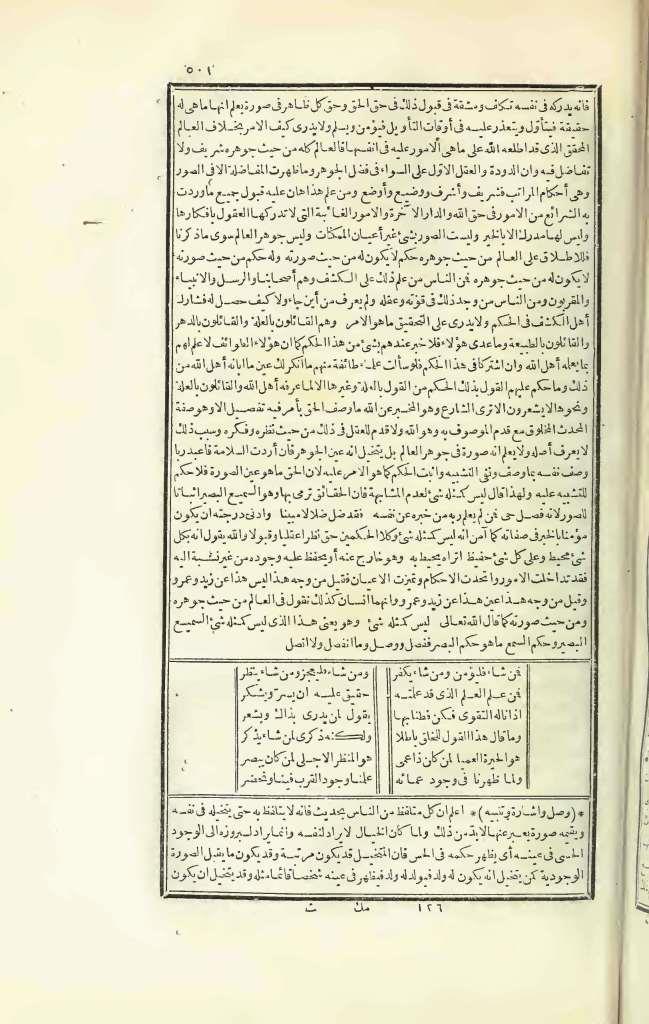 ٥٠١
فانه يدركه فى نفسه تكلف ومشقة فى قبول ذلك فى حق الحق وحق كل ظاهر فى صورة يعلم انها ما هى له
حقيقة فيتأول ويتعذر عليه فى أوقات التأويل فيؤمن ويسلم ولا يدرى كيف الامر بخلاف العالم
المحقق الذى قد اطلعه الله على ما هى الأمور عليه فى انفسها فالعالم كله من حيث جوهره شريف ولا
تفاضل فيه وان الدودة والعقل الاوّل على السواء فى فضل الجوهر وما ظهرت المفاضلة الا فى الصور
وهى أحكام المراتب فشريف وأشرف ووضيع وأوضع ومن علم هذا هان عليه قبول جميع ماوردت
به الشرائع من الامور فى حق الله والدار الآخرة والامور الغائبة التى لا تدركها العقول بافكارها
وليس لها مدرك الا بالخبر وليست الصور بشئ غير أعيان الممكنات وليس جوهر العالم سوى ماذكرنا
فللاطلاق على العالم من حيث جوهره حكم لا يكون له من حيث صورته وله حكم من حيث صورته
لا يكون له من حيث جوهره فمن الناس من علم ذلك على الكشف وهم أصحابنا والرسل والانبياء
والمقربون ومن الناس من وجد ذلك فى قوته وعقله ولم يعرف من أين جاء ولا كيف حصل له فشارك
أهل الكشف فى الحكم ولا يدرى على التحقيق ما هو الامر وهم القائلون بالعلة والقائلون بالدهر
والقائلون بالطبيعة وما عدى هؤلاء فلا خبر عندهم بشئ من هذا الحكم كما ان هؤلاء الطوائف لا علم لهم
بما يعلمه أهل الله وان اشتركا فى هذا الحكم فلو سألت علماء طائفة منهم ما أنكر لك عين ما ابانه أهل الله من
ذلك وما حكم عليهم القول بذلك الحكم من القول بالعلة وغيرها الا ما عرفه أهل الله والقائلون بالعلة
ونحوها لا يشعرون الا ترى الشارع وهو المخبر عن الله ما وصف الحق بأمر فيه تفصيل الا وهو صفة
المحدث المخلوق مع قدم الموصوف به وهو الله ولا قدم للعقل فى ذلك من حيث نظره وفكره وسبب ذلك
لا يعرف أصله ولا يعلم انه صورة فى جوهر العالم بل يتخيل انه عين الجوهر فان أردت السلامة فاعبد ربا
وصف نفسه بما وصف ونفى التشبيه واثبت الحكم كما هو الامر عليه لان الحق ما هو عين الصورة فلا حكم
للتشبيه عليه ولهذا قال ليس كمثله شئ لعدم المشابهة فان الحقائق ترمى بها وهو السميع البصير اثباتا
للصور لانه فصل حى فمن لم يعلم ربه من خبره عن نفسه فقد ضل ضلالا مبينا وادنى درجته ان يكون
مؤمنا بالخبر فى صفاته كما آمن انه ليس كمثله شئ وكلا الحكمين حق نظرا عقليا وقبولا والله يقول انه بكل
شئ محيط وعلى كل شئ حفيظ اتراه يحيط به وهو خارج عنه أو يحفظ عليه وجوده من غير نسبة اليه
فقد تداخلت الامور واتحدت الاحكام وتميزت الاعيان فقيل من وجه هذا ليس هذا عن زيد وعمرو
وقيل من وجه هذا عين هذا عن زيد وعمرو وانهما انسان كذلك نقول فى العالم من حيث جوهره
ومن حيث صورته كما قال الله تعالى ليس كمثله شئ وهو يعنى هذا الذى ليس كمثله شئ السميع
البصير وحكم السمع ما هو حكم البصر ففصل ووصل وما انفصل ولا اتصل
فمن شاء فليؤمن ومن شاء يكفر ومن شاء فليعجز ومن شاء ينظر
فمن علم العلم الذى قد علمته حقيق عليه ان يسرّ ويشكر
اذا ناله التقوى فكن فطنا بها يقول لمن يدرى بذاك ويشعر
وما قال هذا القول للخلق باطلا ولكنه ذكرى لمن شاء يذكر
هو الحيرة العميا لمن كان ذا عمى هو المنظر الاجلى لمن كان يبصر
ولما ظهرنا فى وجود عمائه علمنا وجود القرب فينا ونحضر
* (وصل واشارة وتنبيه) * اعلم ان كل متلفظ من الناس بحديث فانه لا يتلفظ به حتى يتخيله فى نفسه
ويقيمه صورة يعبر عنها لا بدّ من ذلك ولما كان الخيال لا يراد لنفسه وانما يراد لبروزه الى الوجود
الحسى فى عينه أى يظهر حكمه فى الحس فان المتخيل قد يكون مرتبة وقد يكون ما يقبل الصورة
الوجودية كمن يتخيل انه يكون له ولد فيولد له ولد فيظهر فى عينه شخصا قائما مثله وقد يتخيل ان يكون
١٢٦ مك ث